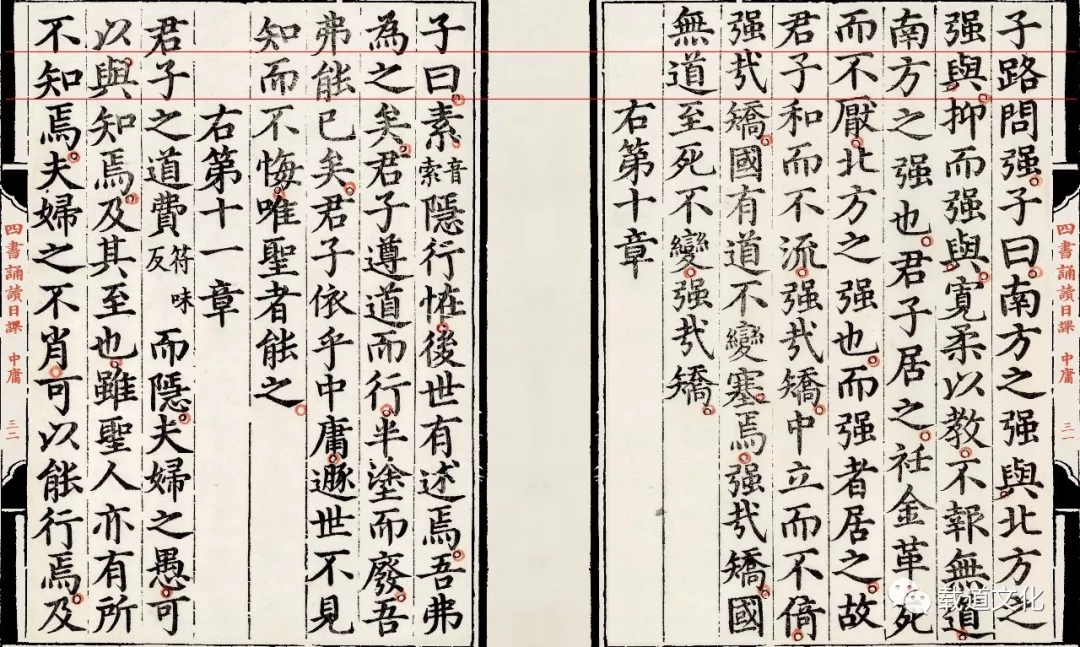 四書誦讀日課 中庸 三一
子路問强子曰南方之强與北方之
强與抑而强與寬柔以教不報無道
南方之强也君子居之衽金革死
而不厭北方之强也而强者居之故
君子和而不流强哉矯中立而不倚
强哉矯國有道不變塞焉强哉矯國
無道至死不變强哉矯
右第十章
子曰素音索隱行恠後世有述焉吾弗
為之矣君子遵道而行半塗而廢吾
弗能已矣君子依乎中庸遯世不見
知而不悔唯聖者能之
右第十一章
君子之道費符味反而隱夫婦之愚可
以與知焉及其至也雖聖人亦有所
不知焉夫婦之不肖可以能行焉及
四書誦讀日課 中庸 三二
载道文化